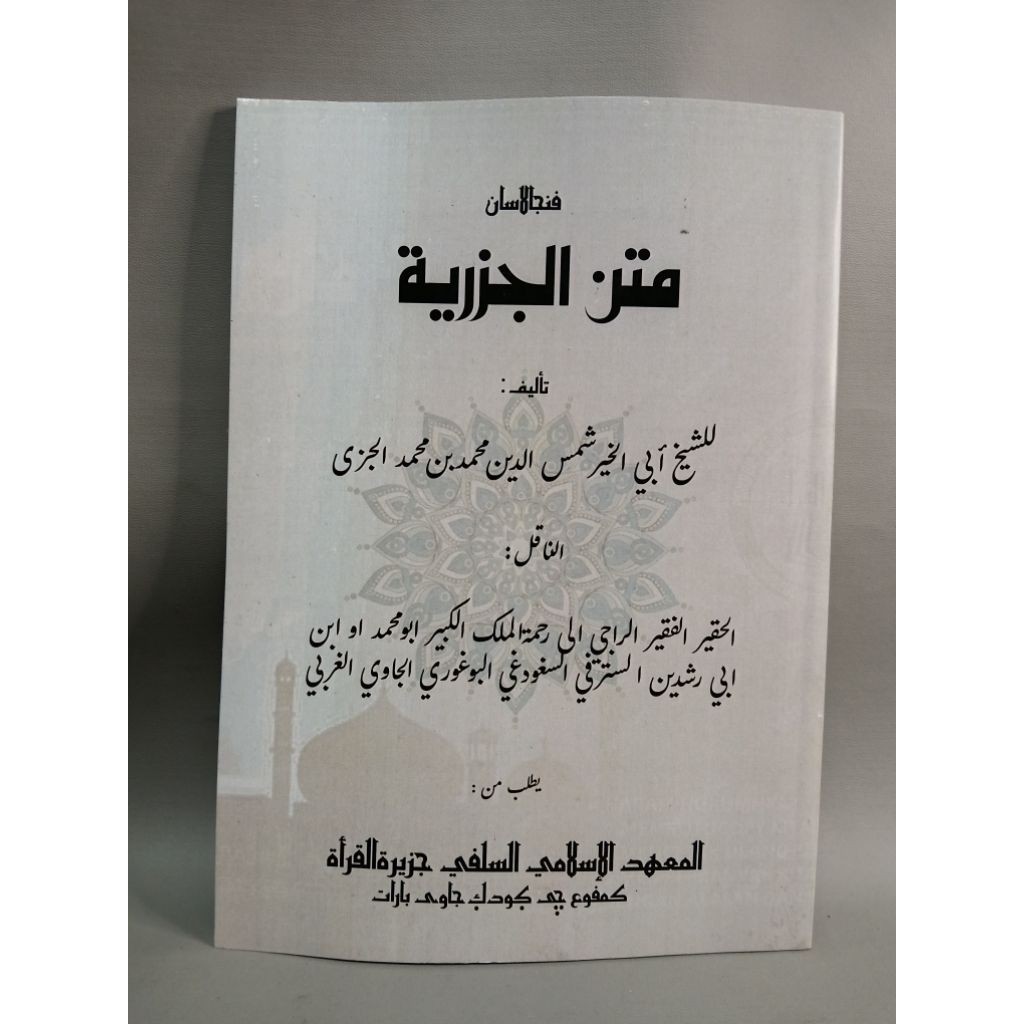 فنجالاسان
متن الجزرية
تأليف :
للشيخ أبي الخير شمس الدين محمد بن محمد الجزى
الناقل :
الحقير الفقير الراجي الى رحمة الملك الكبير ابو محمد او ابن
ابي رشدين السترفي السغودغي البوغوري الجاوي الغربي
يطلب من :
المعهد الإسلامي السلفي جزيرة القرأة
كمفوع چى بودك جاوى بارات